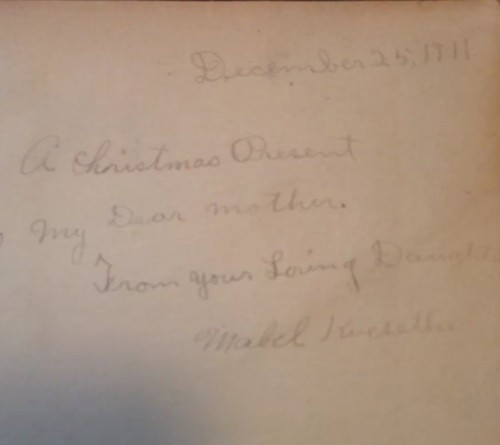 December 25, 1911
A Christmas Present
My Dear mother.
From your Loving Daugh
Mabel